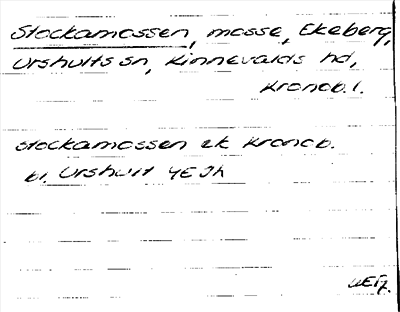 Stockamossen, mosse, Ekeberg,
Urshults sn, Kinnevalds hd,
Kronob. l.
Stockamossen ek Kronob.
bl. Urshult 4E Jh